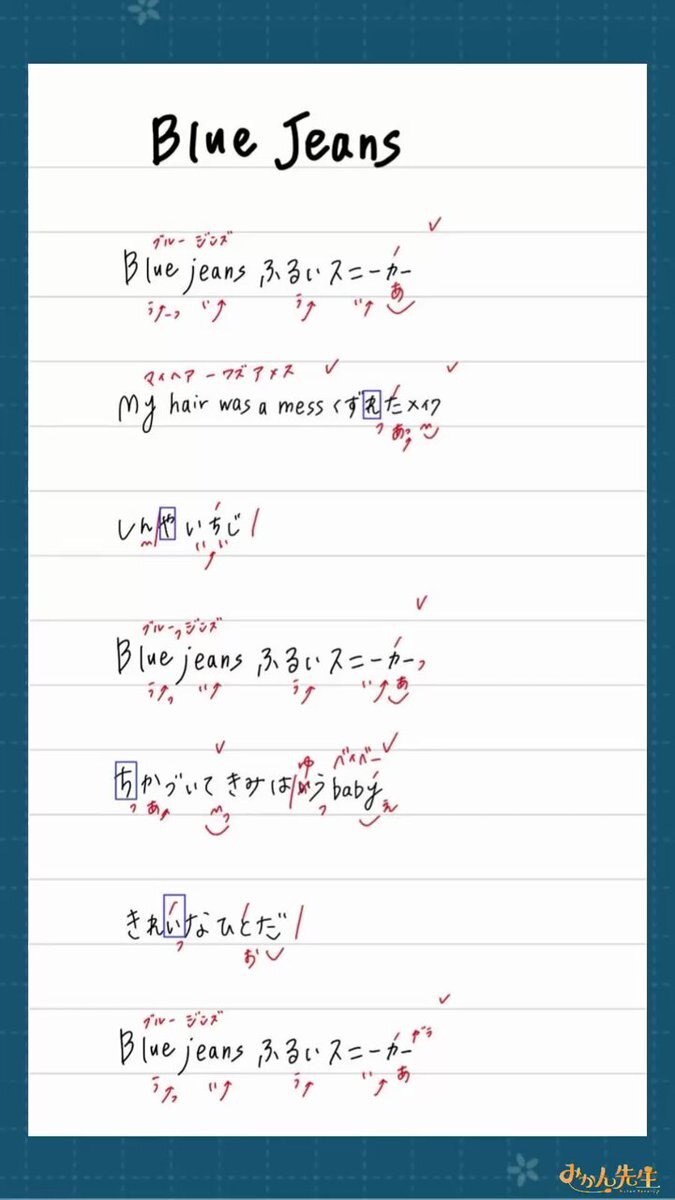 Blue Jeans
ブルー ジンズ
Blue jeans ふるいスニーカー
うーっ い う い あ
マイヘアーワズアメス
My hair was a mess くずれたメイク
っ あっ ん
しんやいちじ
ん い い
ブルーっジンズ
Blue jeans ふるいスニーカーっ
うっ い う い あ
ゆ ベイベー
ちかづいて きみはいう baby
っ あ っ っ え
きれいなひとだ
っ お
ブルー ジンズ
Blue jeans ふるいスニーカー
うっ い う い あ
みかん先生